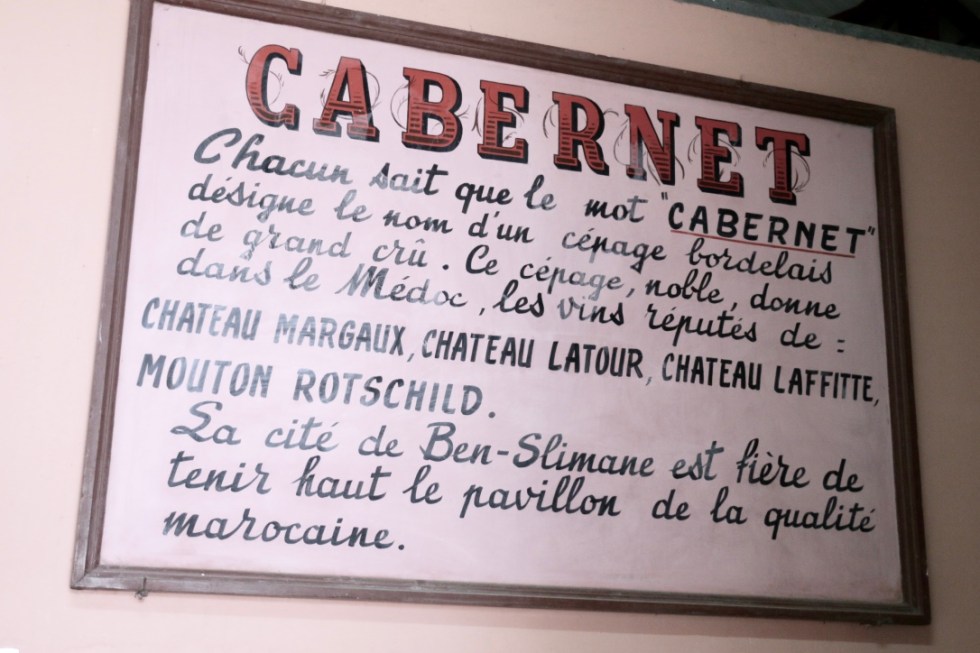 CABERNET
Chacun sait que le mot "CABERNET"
désigne le nom d'un cépage bordelais
de grand crû. Ce cépage, noble, donne
dans le Médoc, les vins réputés de :
CHATEAU MARGAUX, CHATEAU LATOUR, CHATEAU LAFFITTE,
MOUTON ROTSCHILD.
La cité de Ben-Slimane est fière de
tenir haut le pavillon de la qualité
marocaine.